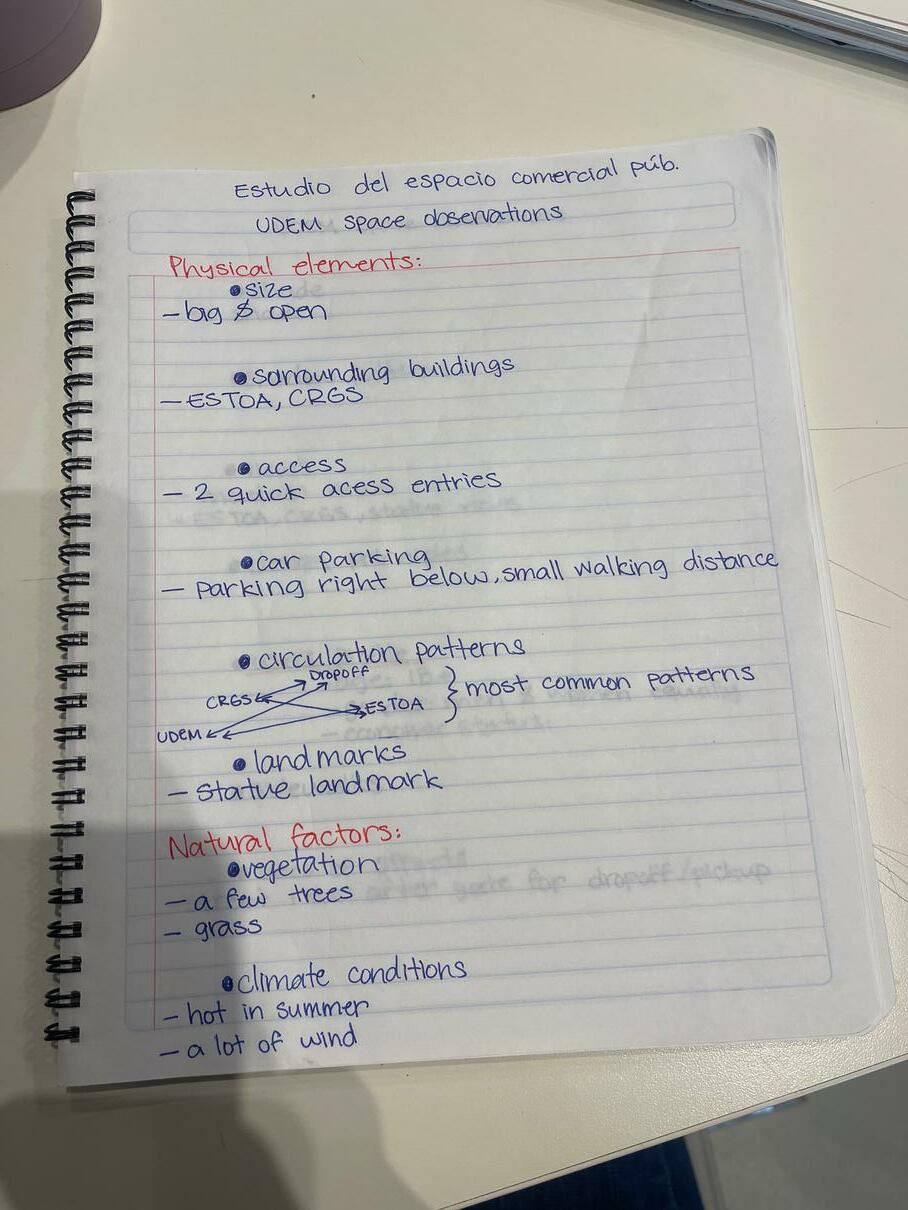 Estudio del espacio comercial púb.
UDEM space observations
Physical elements:
• size
- big & open
• sorrounding buildings
- ESTOA, CRGS
• access
- 2 quick acess entries
• car parking
- parking right below, small walking distance
• circulation patterns
Dropoff
CRGS
ESTOA
UDEM
} most common patterns
• landmarks
- statue landmark
Natural factors:
• vegetation
- a few trees
- grass
• climate conditions
- hot in summer
- a lot of wind